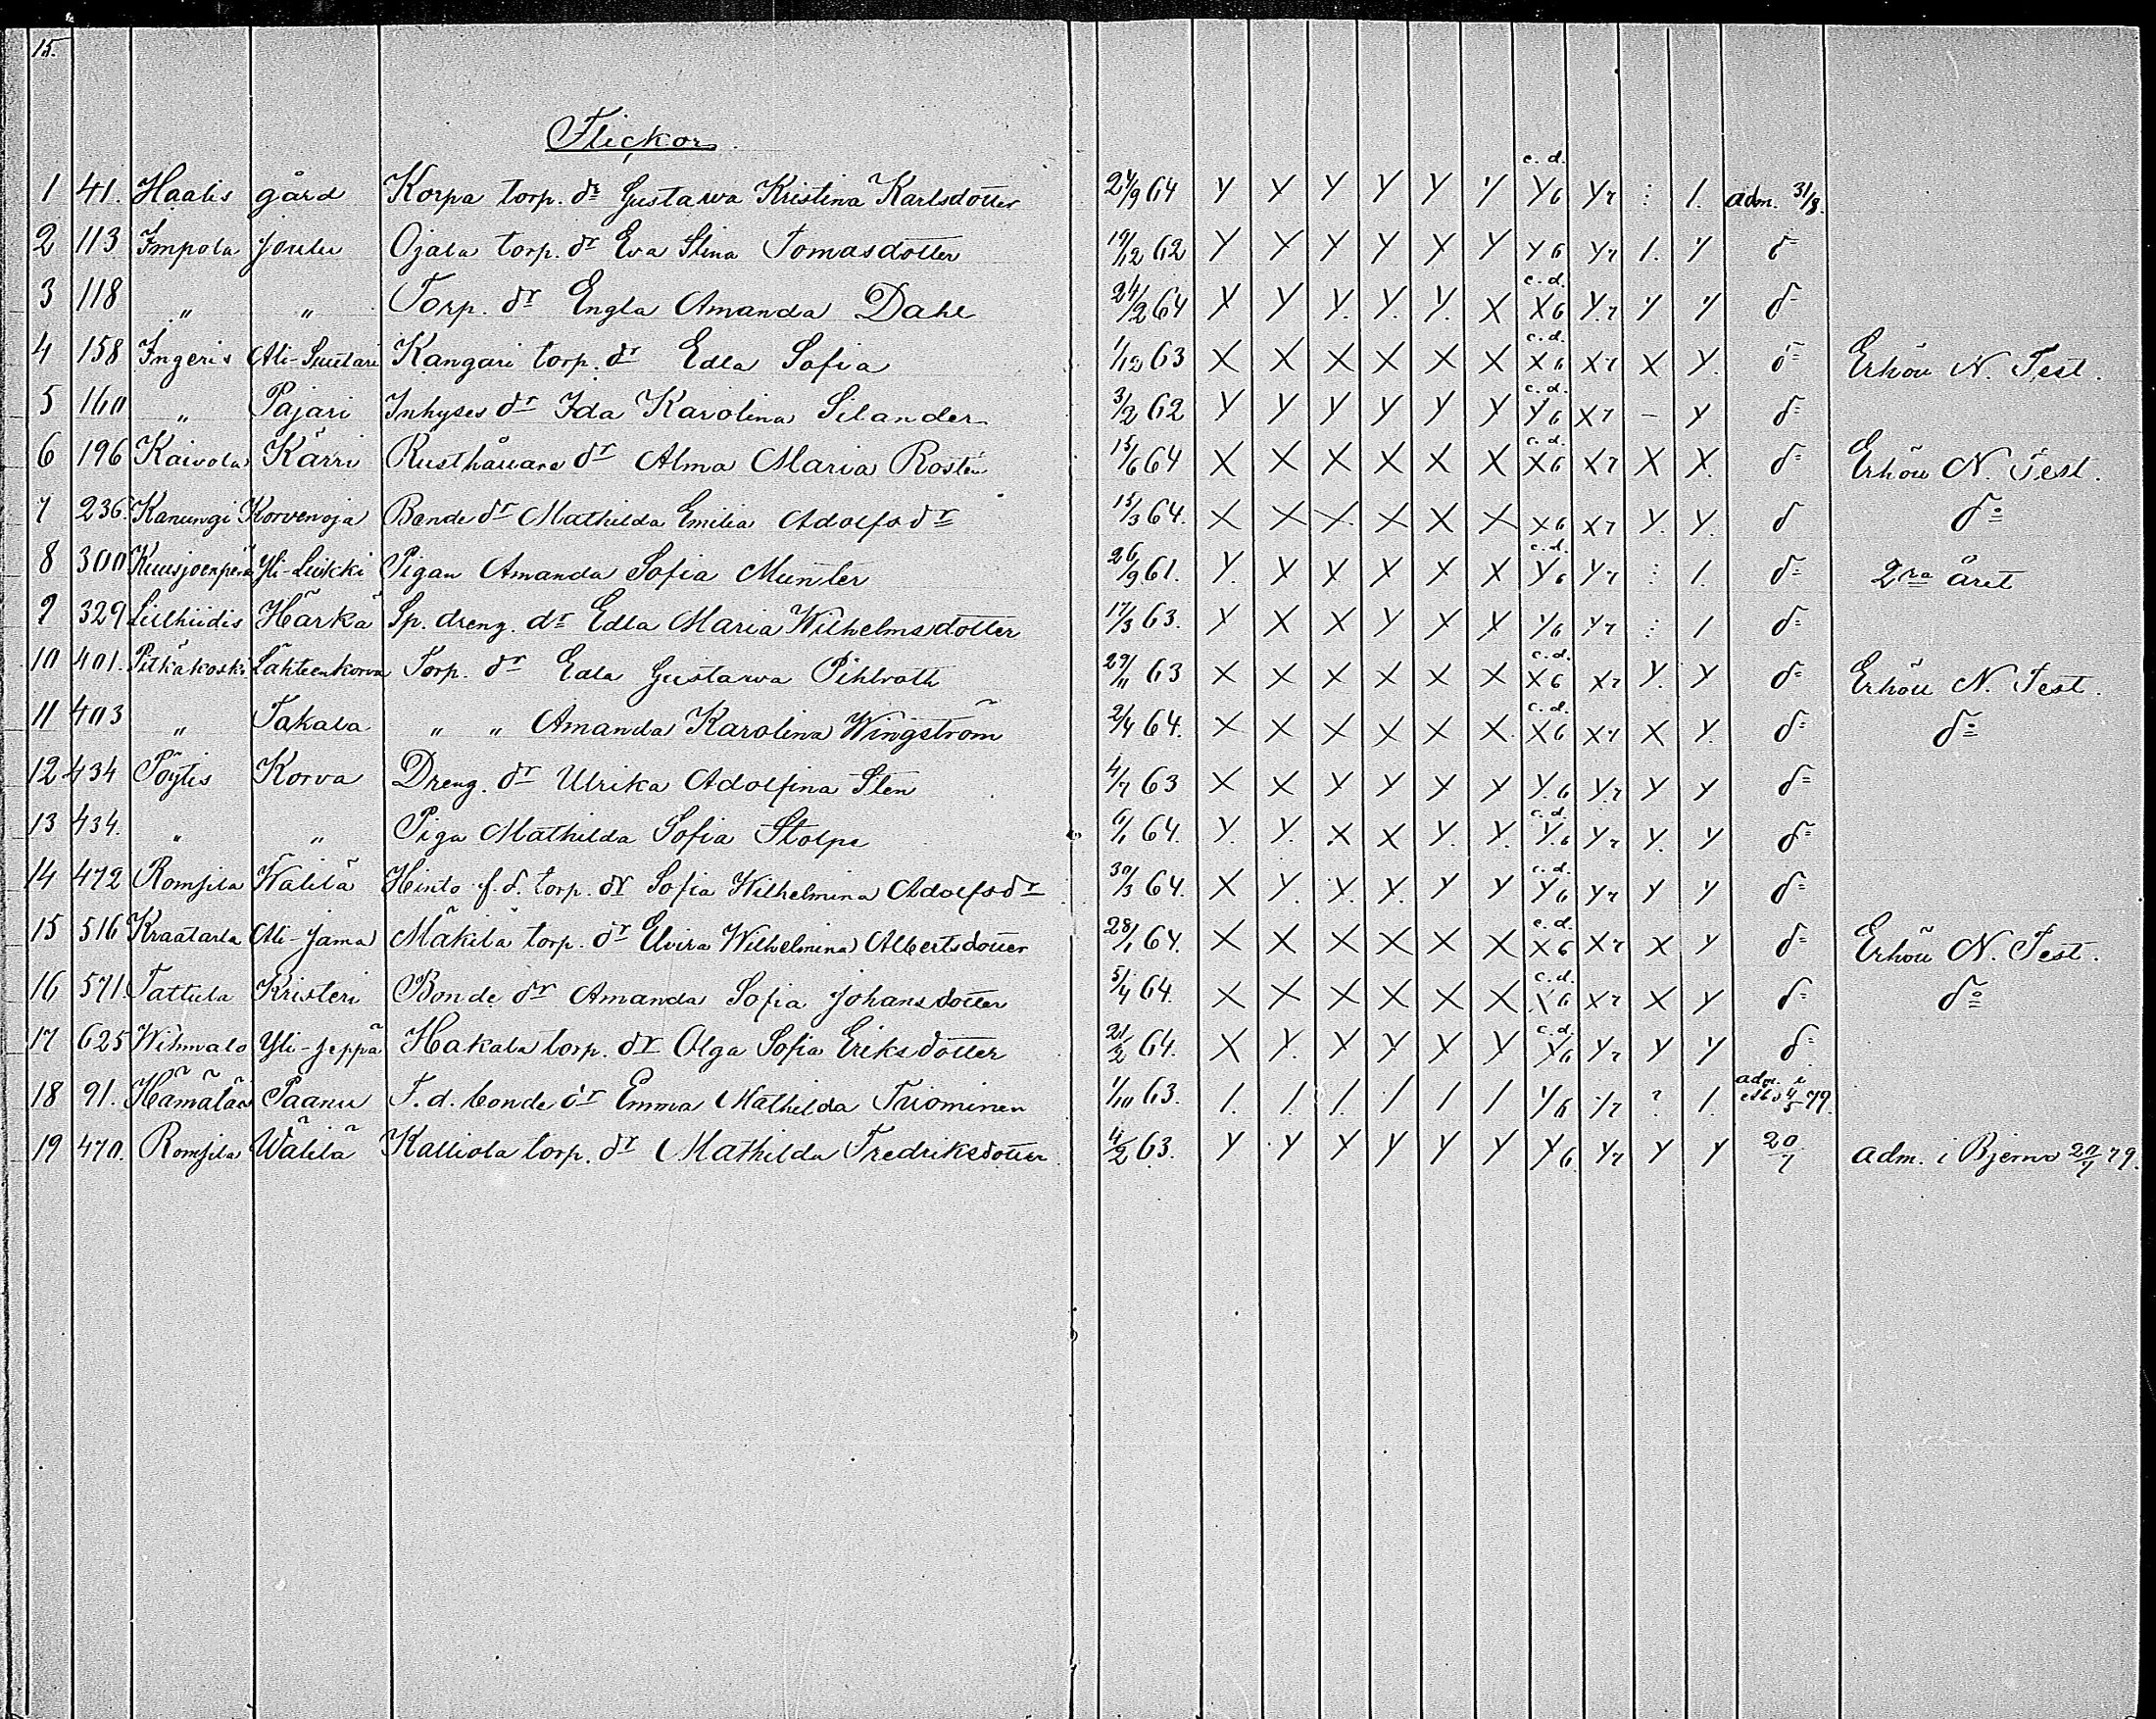 15.
Flickor
c. d.
1 41. Haalis gård Korpa torp. dr Gustawa Kristina Karlsdotter 24/9 64 Y Y Y Y Y Y Y6 Y7 : /. adm. 31/8.
2 113 Impola Joulu Ojala torp. dr Eva Stina Tomasdotter 19/12 62 Y Y Y Y Y Y Y6 Y7 /. Y d
c. d.
3 118 " " Torp. dr Engla Amanda Dahl 24/12 64 Y Y Y. Y. Y. X X6 Y.7 Y Y d
c. d.
4 158 Ingeris Ali-Suutari Kangari torp. dr Edla Sofia 1/12 63 X X X X X X X6 X7 X Y. d Erhöll N. Test.
c. d.
5 160 " Pajari Inhyses dr Ida Karolina Silander 3/2 62 Y Y Y Y Y Y Y6 X7 – Y d
c. d.
6 196 Kaivola Kärri Rusthållare dr Alma Maria Rostén 15/6 64 X X X X X X X6 X7 X X. d Erhöll N. Test.
7 236. Kanungi Korvenoja Bonde dr Mathilda Emilia Adolfsdr 15/3 64. X X X X X X X6 X7 Y. Y. d do
c. d.
8 300 Kuusjoenperä Yli-Luikki Pigan Amanda Sofia Munter 26/9 61. Y. X X X X X Y6 Y7 : /. d 2ra året
9 329 Härkä Sp. dreng. dr Edla Maria Wilhelmsdotter 17/3 63. Y X X Y X X Y6 Y7 : / d
c. d.
10 401. Pitkäkoski Lähteenkorva Torp. dr Edla Gustawa Pihlroth 29/11 63 X X X X X X X6 X7 Y. Y d Erhöll N. Test.
c. d.
11 403 " Takala " " Amanda Karolina Wingström 2/4 64. X X X X X X. X6 X7 X Y. d do
12 434 Pöytis Korva Dreng. dr Ulrika Adolfina Sten 4/7 63 X X Y Y Y Y Y.6 Y.7 Y Y d
c. d.
13 434. " " Piga Mathilda Sofia Stolpe 6/1 64. Y. Y. X X Y. Y. Y.6 Y7 Y. Y d
c. d.
14 472 Romsila Wälilä Hinto f.d. torp. dr Sofia Wilhelmina Adolfsdr 30/3 64. X Y. Y. Y. Y Y Y6 Y7 Y Y d
c. d.
15 516 Kraatarla Ali-Jama Mäkilä torp. dr Elvira Wilhelmina Albertsdotter 28/1 64. X X X X X X X6 X7 X Y d Erhöll N. Test.
c. d.
16 571. Tattula Kristeri Bonde dr Amanda Sofia Johansdotter 5/4 64. X X X X X X X6 X7 X Y d do
c. d.
17 625 Wihmalo Yli-Jeppä Hakala torp. dr Olga Sofia Eriksdotter 21/2 64. X Y. X Y X Y Y6 Y7 Y Y d
18 91. Hämälä Paanu F. d. bonde dr Emma Mathilda Tuominen 1/10 63. /. /. /. / / / Y6 Y7 ? /. adm. i 4/5 79.
19 470. Romsila Wälilä Kalliola torp. dr Mathilda Fredriksdotter 4/2 63. Y Y X Y Y Y Y6 Y7 Y Y 20/7 adm. i Bjerno 20/7 79.